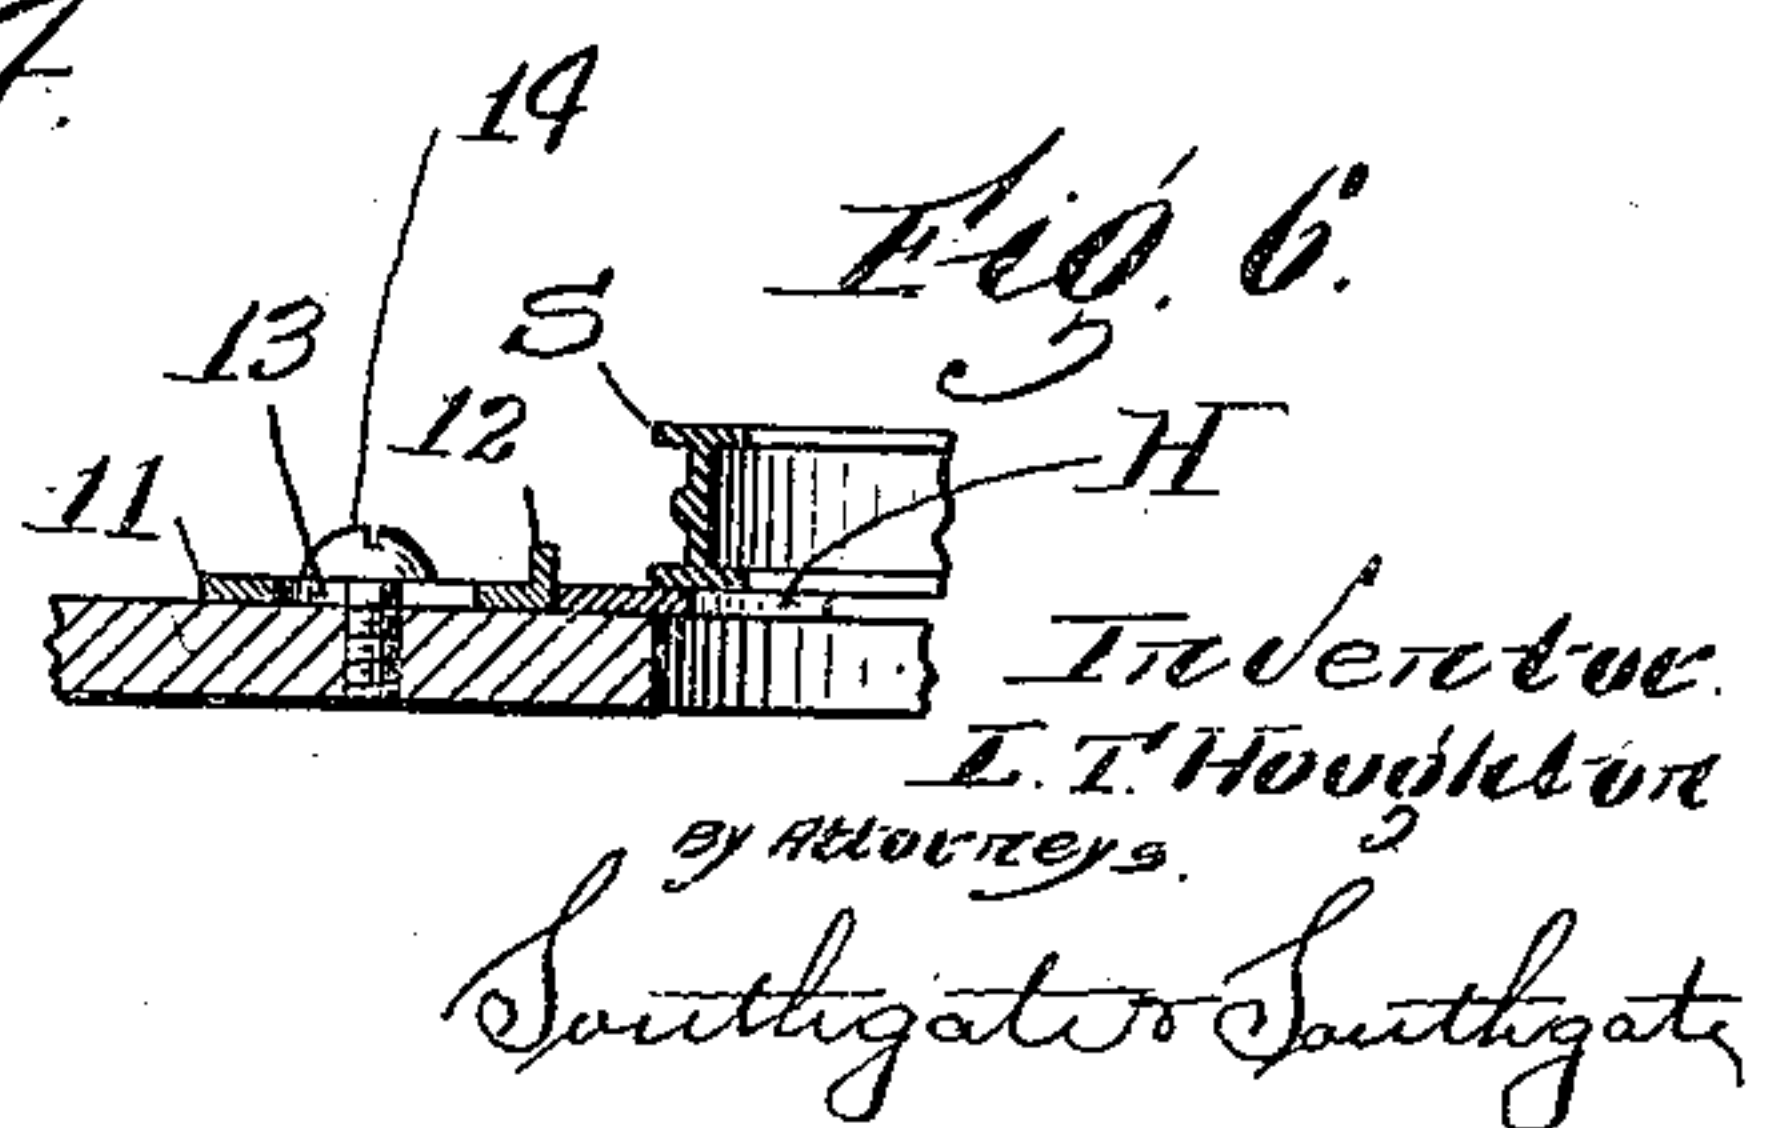 7.
14
Fig. 6.
13
S
12
H
11
Inventor.
I. T. Houghton
By Attorneys.
Southgate & Southgate